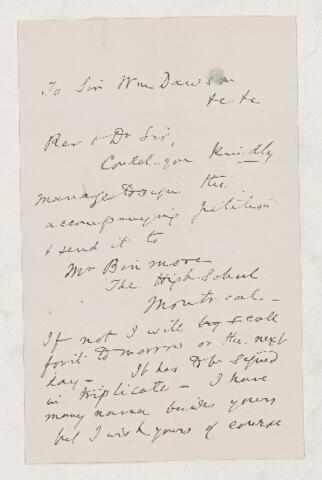 To Sir Wm Dawson
&c &c
Rev & Dr Sir,
Could you kindly
manage to sign the
accompanying petition
& send it to
Mr Binmore
The High School
Montreal.—
If not I will call
for it to morrow or the next
day— It has to be signed
in triplicate— I have
many names besides yours
but I wish yours of course.